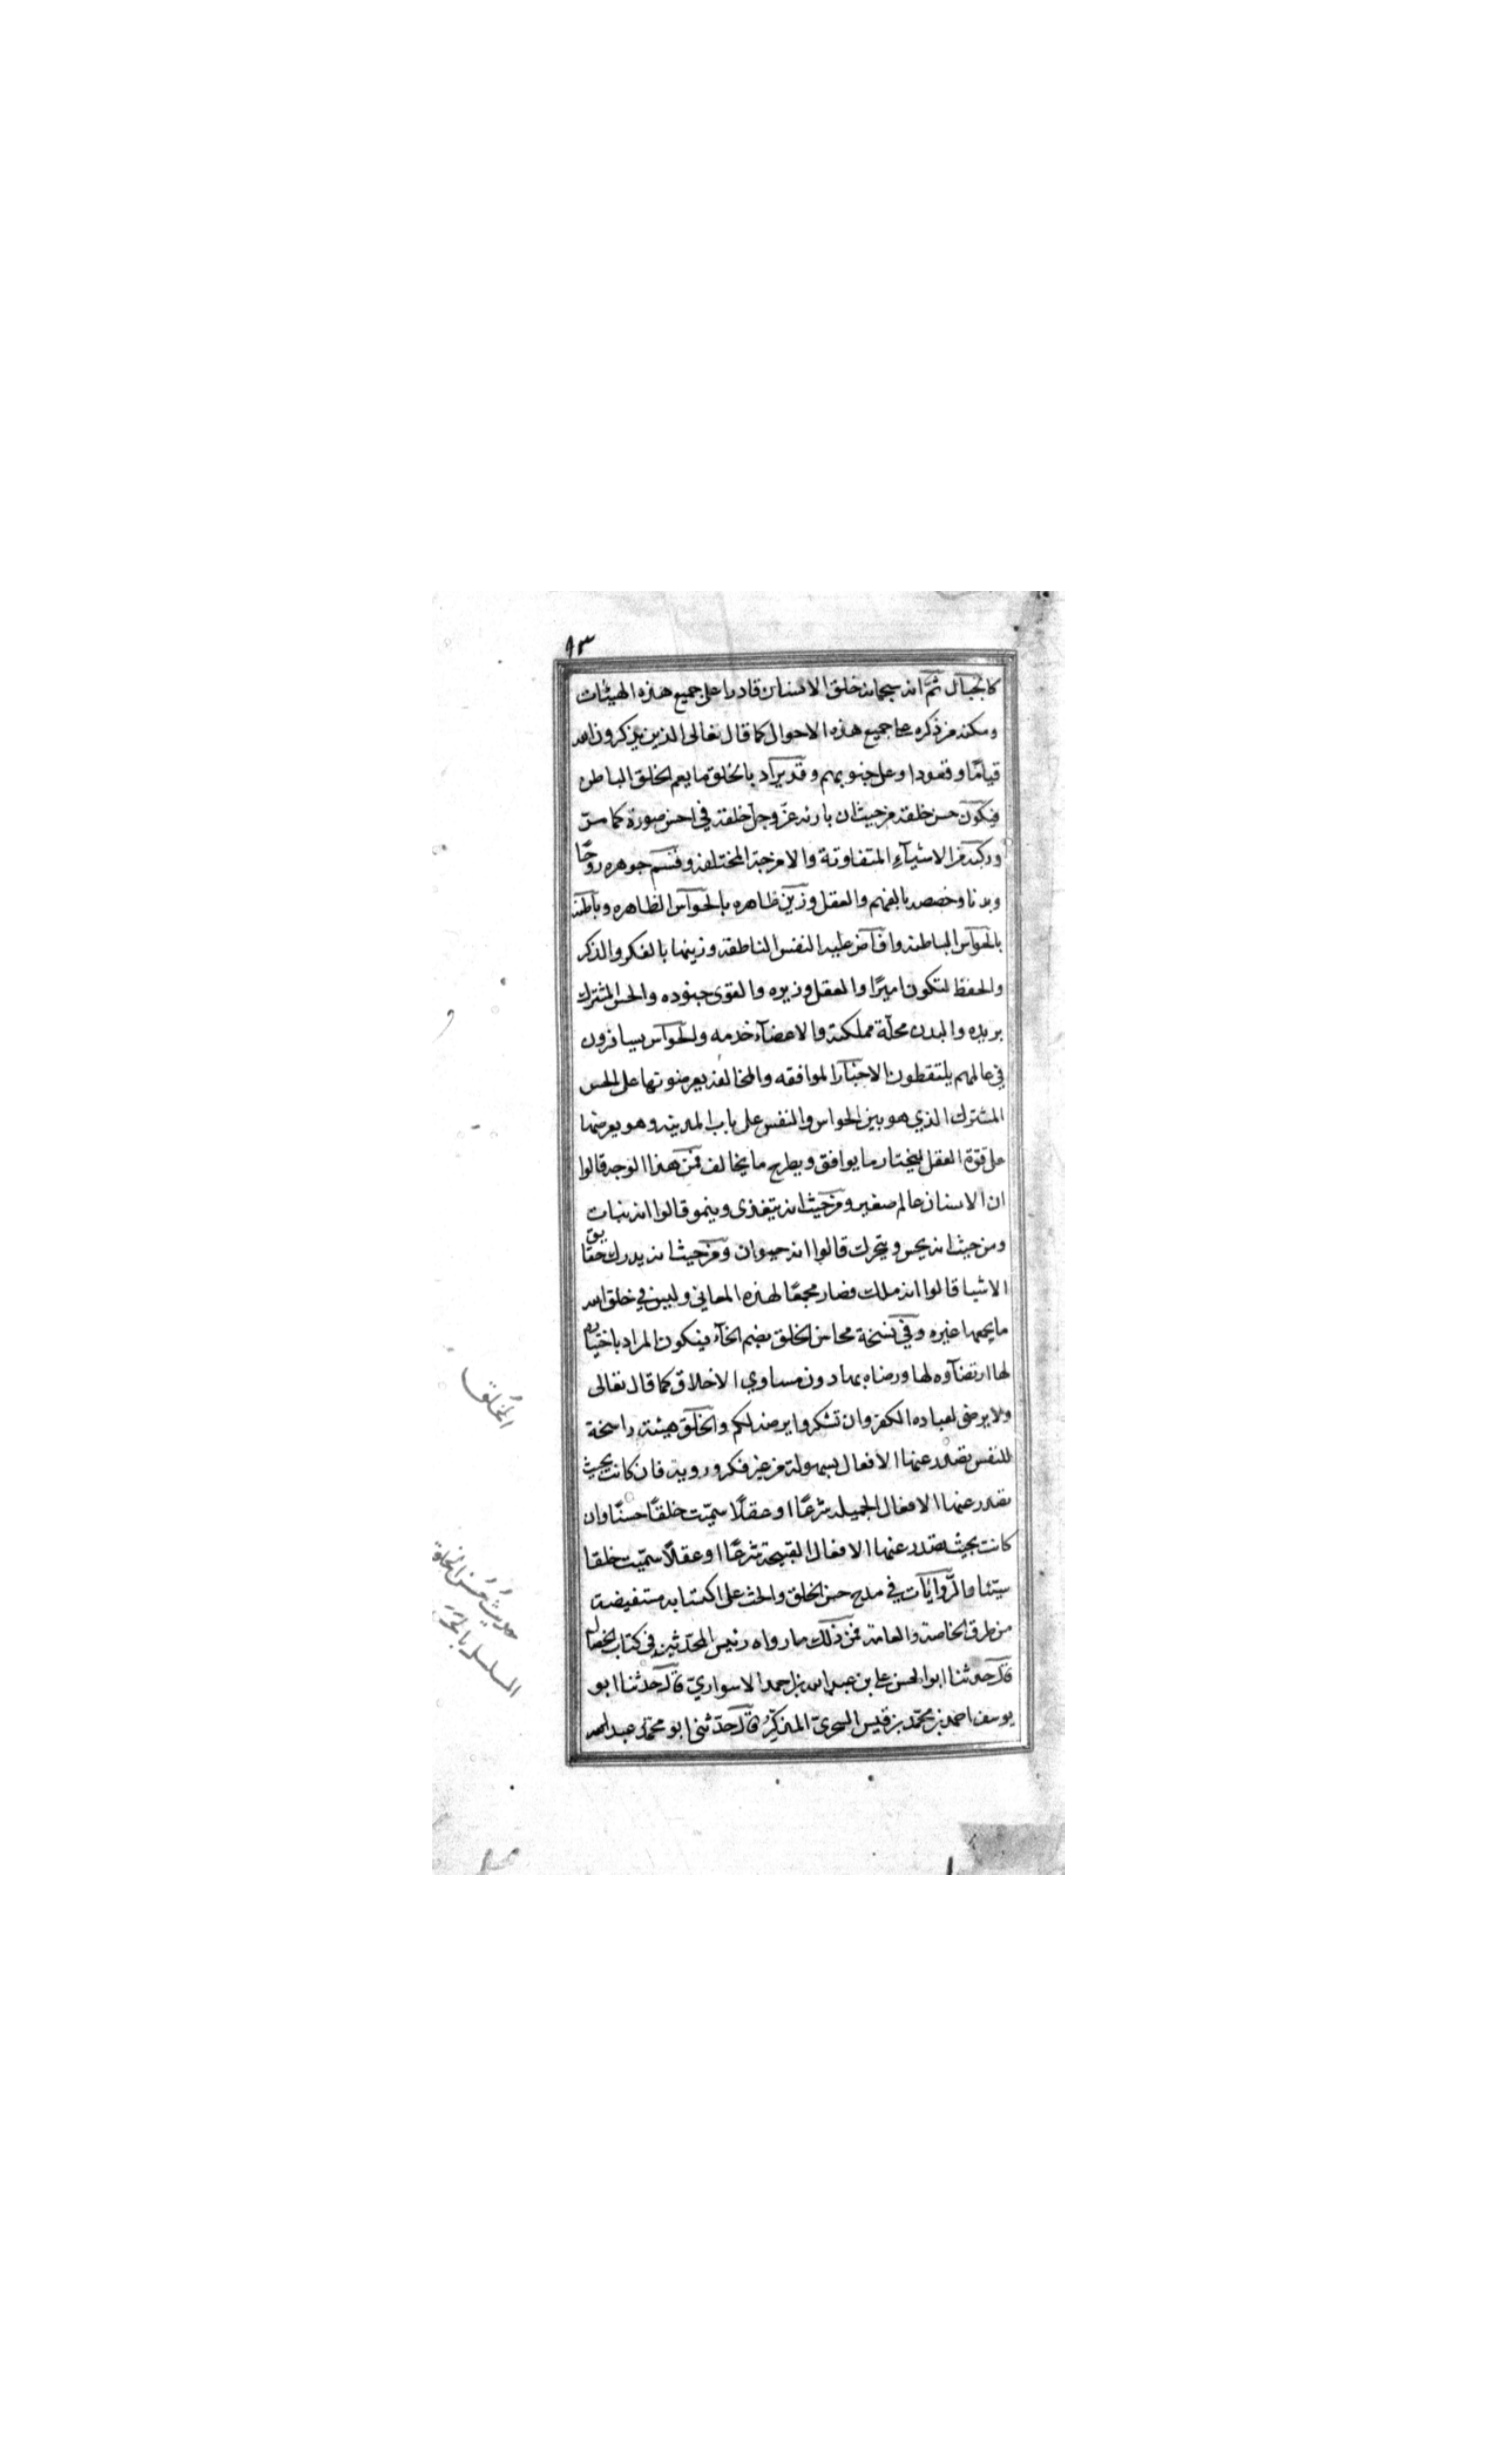 ٩٣
كالجبال ثم انه سبحانه خلق الانسان قادرا على جميع هذه الهيئات
ومكنه من ذكره على جميع هذه الاحوال كما قال تعالى الذين يذكرون الله
قيامًا وقعودا وعلى جنوبهم وقد يراد بالخلق ما يعم الخلق الباطن
فيكون حسن خلقه من حيث ان بارئه عزّ وجل خلقه في احسن صورة كما مرّ
وركبه من الاشيآء المتفاوتة والامزجة المختلفة وقسم جوهره روحًا
وبدنا وخصصه بالفهم والعقل وزين ظاهره بالحواس الظاهره وباطنه
بالحواس الباطنه وافاض عليه النفس الناطقة وزينها بالفكر والذكر
والحفظ لتكون اميرًا والعقل وزيره والقوى جنوده والحس المشترك
بريده والبدن محلّة مملكته والاعضآء خدمه والحواس يسافرون
في عالمهم يلتقطون الاخبار الموافقه والمخالفة يعرضونها على الحس
المشترك الذي هو بين الحواس والنفس على باب المدينه وهو يعرضها
على قوة العقل ليختار ما يوافق ويطرح ما يخالف فمن هذا الوجه قالوا
ان الانسان عالم صغير ومن حيث انه يتغذى وينمو قالوا انه نبات
ومن حيث انه يحس ويتحرك قالوا انه حيوان ومن حيث انه يدرك حقايق
الاشيا قالوا انه ملك فصار مجمعًا لهذه المعاني وليس في خلق الله
ما يجمعها غيره وفي نسخة محاسن الخلق بضم الخآء فيكون المراد باختياره
لها ارتضآوه لها ورضاه بها دون مساوي الاخلاق كما قال تعالى
ولا يرضى لعباده الكفر وان تشكروا يرضه لكم والخلق هيئة راسخة
للنفس تصدر عنها الافعال بسهولة من غير فكر وروية فان كانت بحيث
تصدر عنها الافعال الجميله شرعًا او عقلًا سمّيت خلقًا حسنًا وان
كانت بحيث تصدر عنها الافعال القبيحة شرعًا او عقلًا سمّيت خلقا
سيّئا والرّوايات في مدح حسن الخلق والحث على اكتسابه مستفيضة
من طرق الخاصة والعامة فمن ذلك ما رواه رئيس المحدّثين في كتاب الخصال
قال حدثنا ابو الحسن علي بن عبد الله بن احمد الاسواري قال حدثنا ابو
يوسف احمد بن محمّد بن قيس السجزي المذكّر قال حدّثني ابو محمّد عبد الله
الخُلق
حديثُ حُسن الخلق
المسلسل بالحَسَن